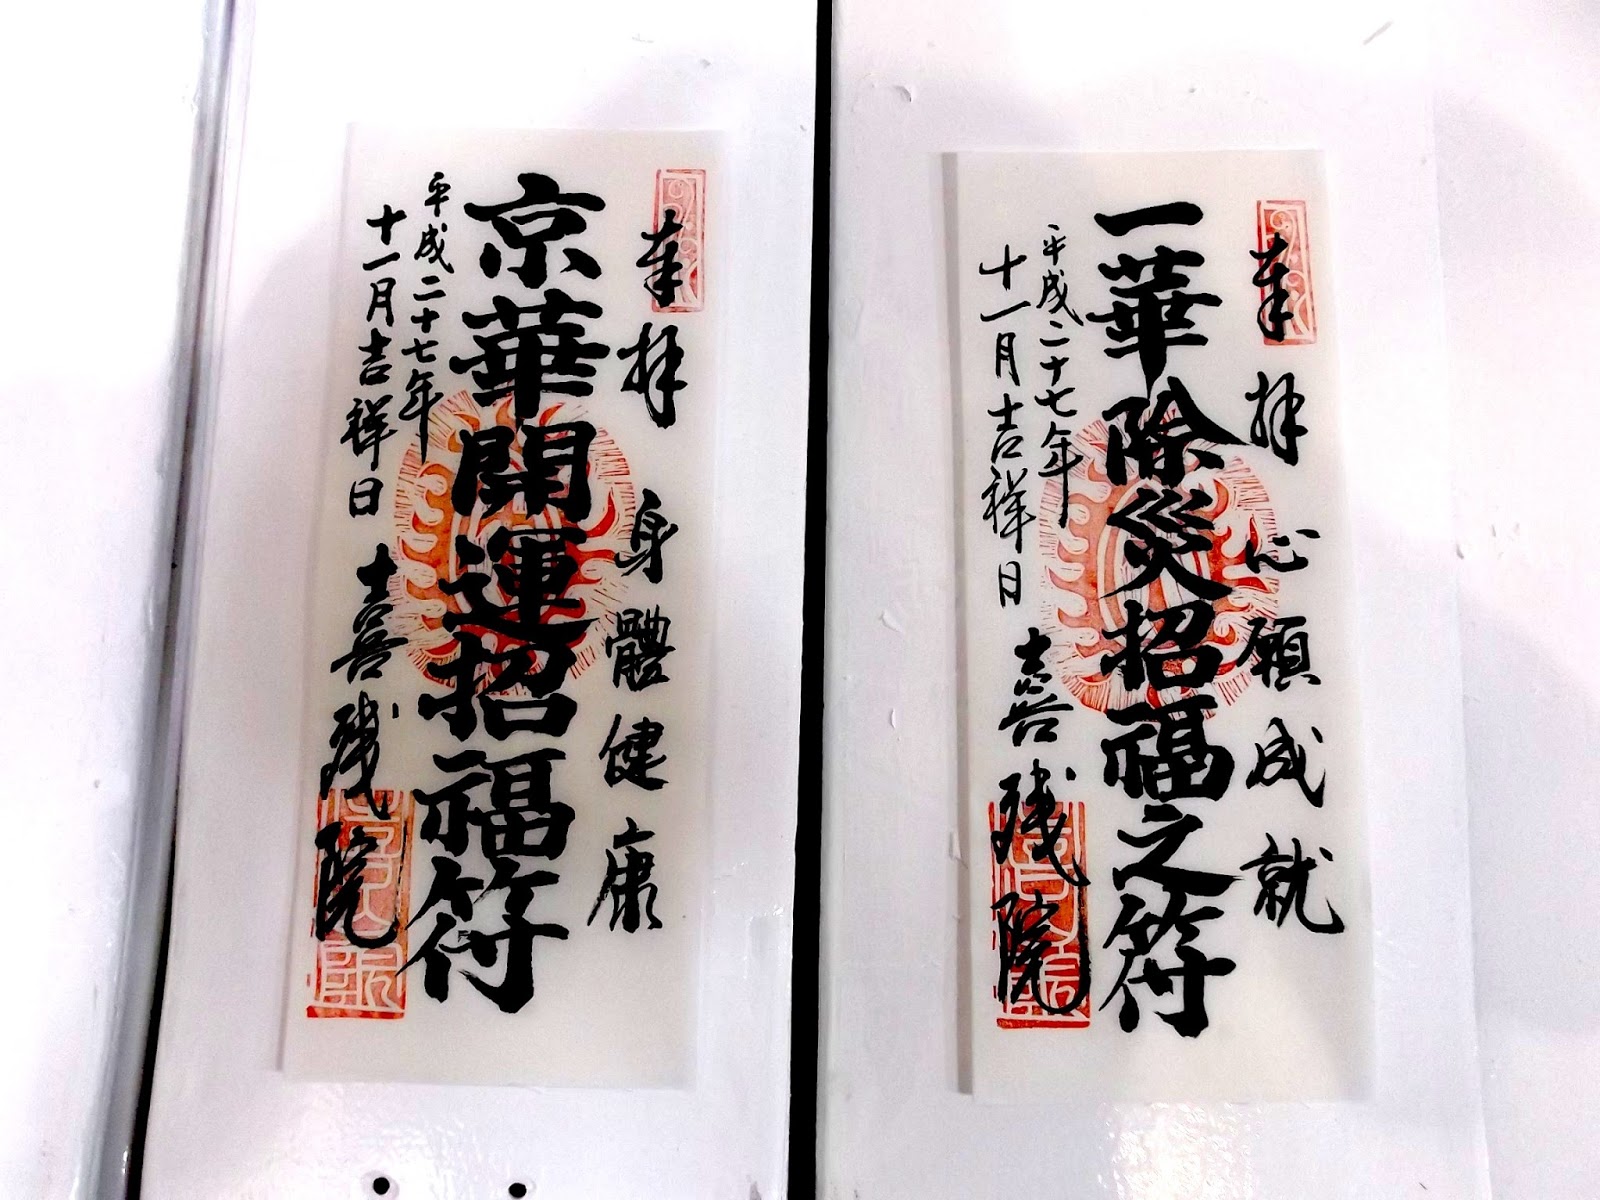 奉拝 心願成就
一華除災招福之符
平成二十七年
十一月吉祥日
院
奉拝 身體健康
京華開運招福符
平成二十七年
十一月吉祥日
院